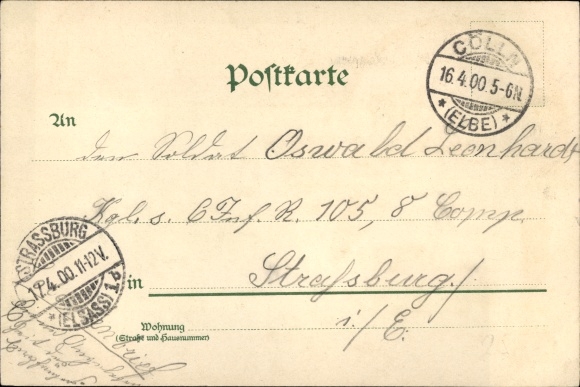 Postkarte
CÖLLN
16.4.00.5-6N.
* (ELBE) *
An
den Soldat Oswald Leonhardt
Kgl. s. 6 Inf. R. 105, 8 Comp.
STRASSBURG
17.4.00.11-12V.
* (ELSASS) 1 PT.
in
Straßburg/
i/E.
Wohnung
(Straße und Hausnummer)